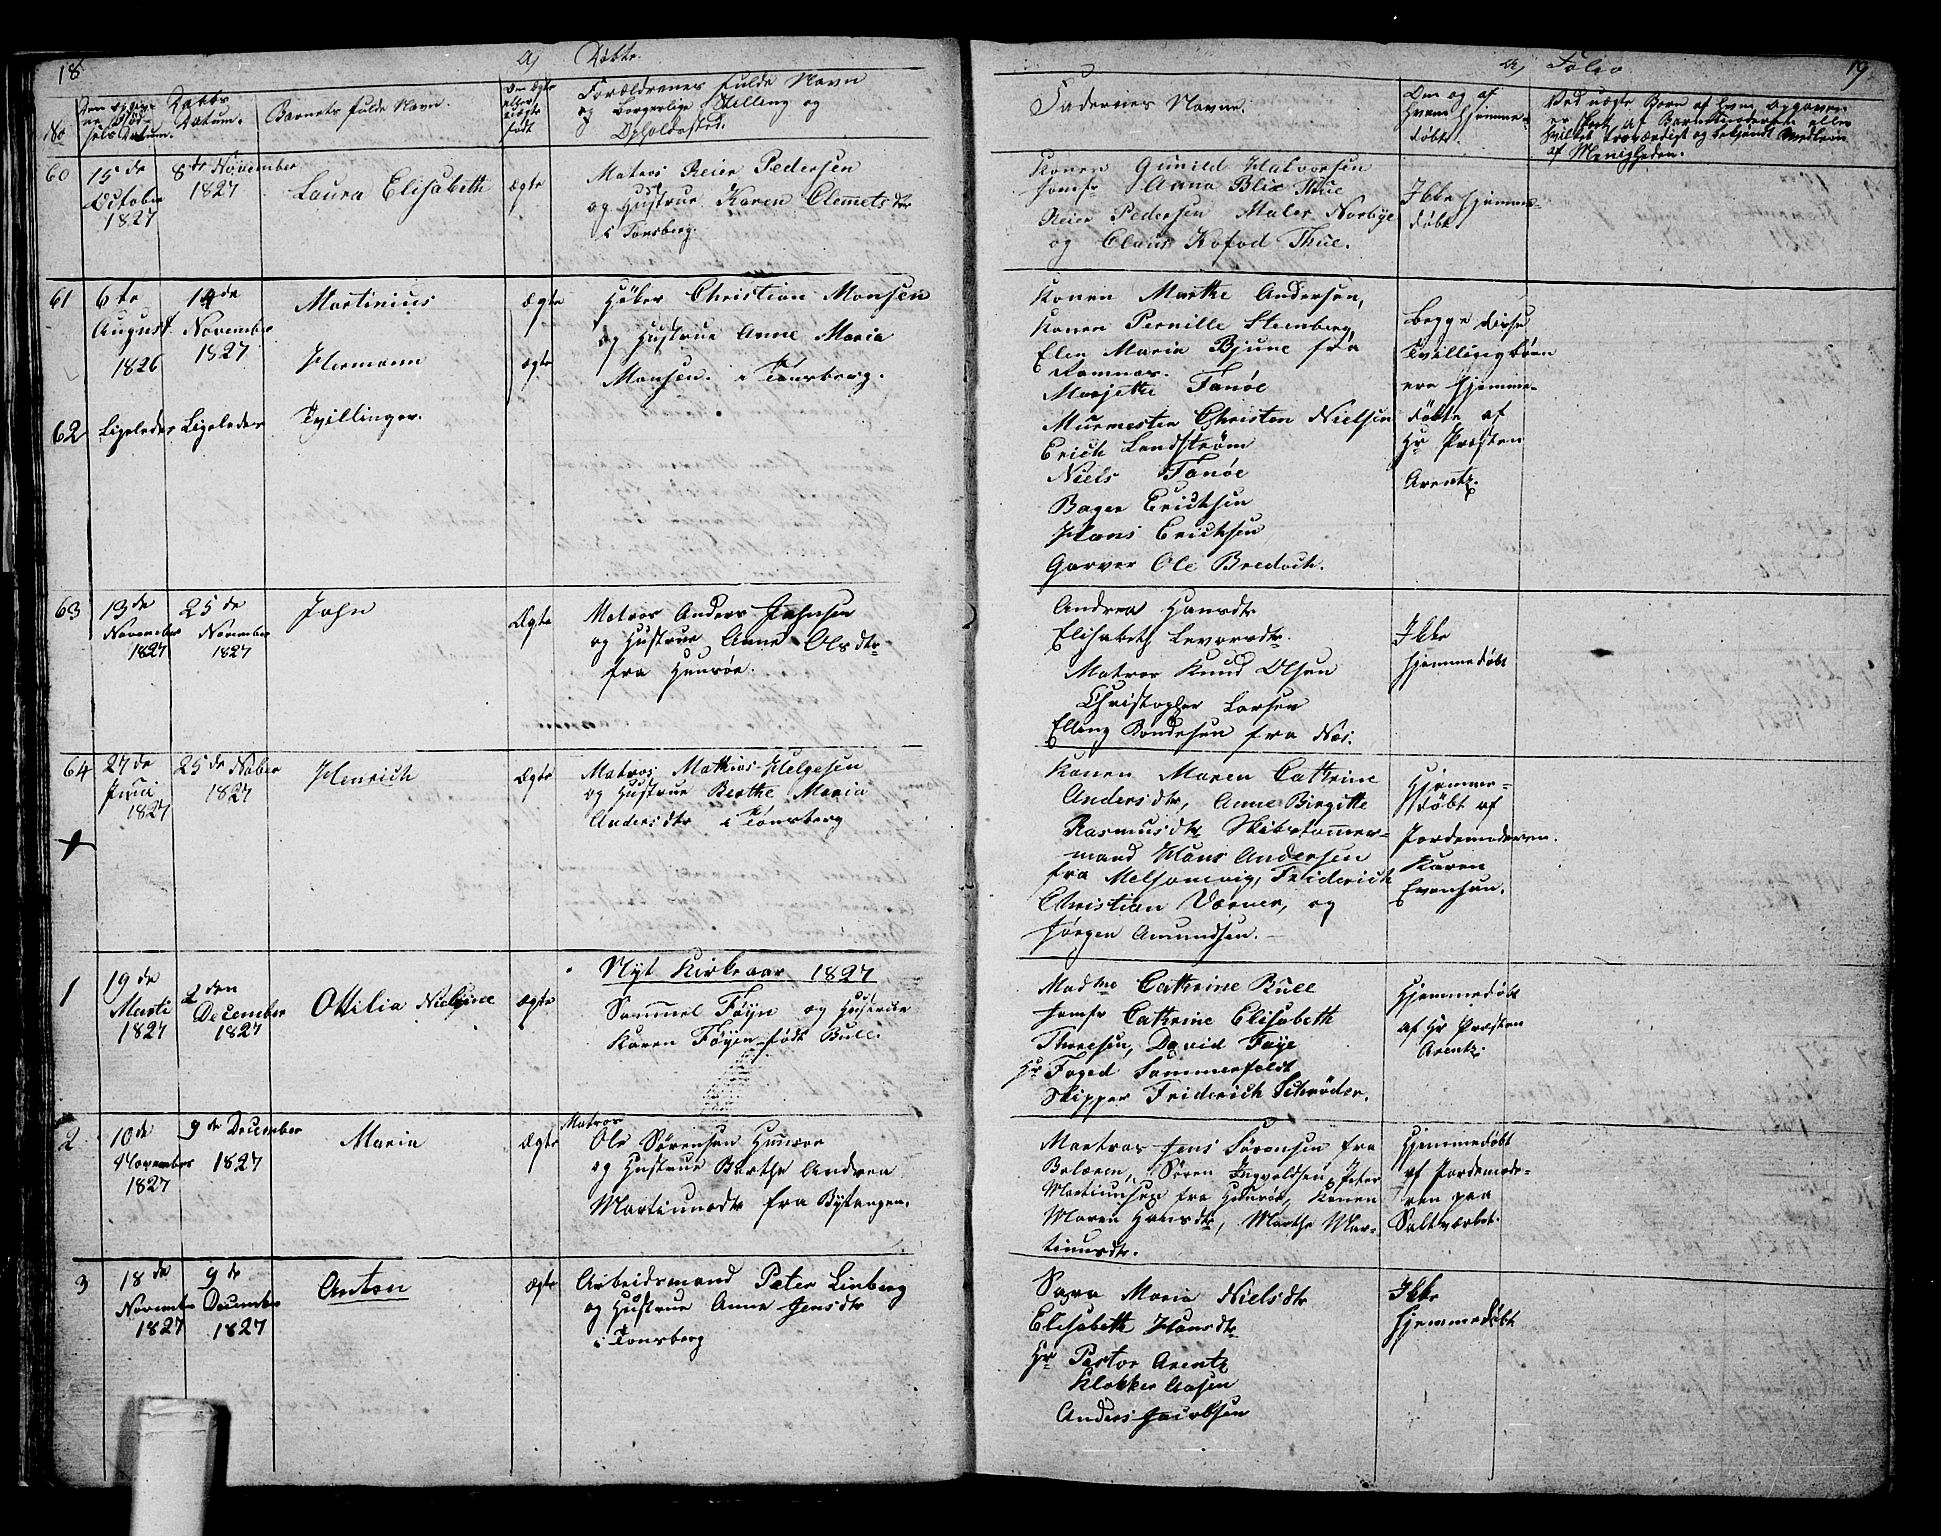 18
a) Døbte.
No
Den opgivne Fødsels Datum.
Daabs Datum.
Barnets fulde Navn.
Om ægte eller uægte født
Forældrenes fulde Navn
og borgerlige Stilling og
Opholdssted.
60
15 de
October
1827
8de November
1827
Laura Elisabeth
Ægte
Matros Reier Pedersen
og Hustrue Karen Clemetsdtr
i Tonsberg.
61
6te
August
1826
14de
November
1827
Martinius
Ægte
Høker Christian Monsen
og Hustrue Anne Maria
Monsen. i Tonsberg.
Hermann
Ægte
62
Ligeledes
Ligeledes
Tvillinger.
63
13de
November
1827
25de
November
1827
John
Ægte
Matros Anders Johnsen
og Hustrue Anne Olsdtr
fra Husøe.
64
27de
Juni
1827
25de Nober
1827
Henrich
Ægte
Matros Mathias Helgesen
og Hustrue Berthe Maria
Andersdtr i Tonsberg
1
19de
Marti
1827
2den
December
1827
Ottilia Nielsine
Ægte
Nyt Kirkeaar 1827
Sammel Føyn og Hustrue
Karen Føyen født Bull.
2
10de
November
1827
9de December
1827
Maria
Ægte
Matros
Ole Sørensen
og Hustrue Berthe Andrea
Martinusdtr fra Bystangen.
3
18de
November
1827
9de
December
1827
Anton
Ægte
Arbeidsmand Peter Linberg
og Hustrue Anne Jensdtr
i Tonsberg
a) Folio
19
Fadernes Navne.
Om og af
hvem hjemme-
døbt.
Ved uægte Børn af hvem Opgaven
er skeet, af Barnemoderen eller
hvilket troværdigt og bekjendt Medlem
af Menigheden.
Konen Gunild Halvorsen
Jomfr Anna Blix Thue
Reier Pedersen Maler Norbye
og Claus Kofod Thue.
Ikke hjemme-
døbt
Konen Marthe Andersen,
Konen Pernille Steenberg,
Elen Maria Bjune fra
Ramnæs.
Marjethe Fanöe
Murmester Christen Nielsen
Erich Landström
Niels Fanöe
Bager Erichsen
Hans Erichsen
Garver Ole Bredoch.
Begge disse
Tvillingbörn
ere hjemme-
døbte af
Hr Præsten
Arentz.
Andrea Hansdtr
Elisabeth Levorsdtr.
Matros Knud Olsen
Christopher Larsen
Elling Bondesen fra Næs.
Ikke
hjemmedøbt
Konen Maren Cathrine
Andersdtr, Anne Birgitte
Rasmusdtr Skibstømer-
mand Hans Andersen
fra Melsomvig, Friderich
Christian Værner, og
Jørgen Amundsen.
Hjemme-
døbt af
Jordemoderen
Karen
Evensen.
Madme Cathrine Bull
Jomfr Cathrine Elisabeth
Thoresen, David Faye
Hr Foged Sommerfeldt
Skipper Friderich Schröder.
Hjemmedøbt
af Hr Præsten
Arentz.
Martros Jens Sørensen fra
Bolæren, Søren Ingvaldsen, Peter
Martiunsen fra Husøe, Konen
Maren Hansdtr, Marthe Mar-
tinusdtr.
Hjemmedøbt
af Jordemode-
ren paa
Saltværket.
Sara Maria Nielsdtr
Elisabeth Hansdtr
Hr Pastor Arentz
Klokker Aasen
Anders Jacobsen
Ikke
hjemmedøbt